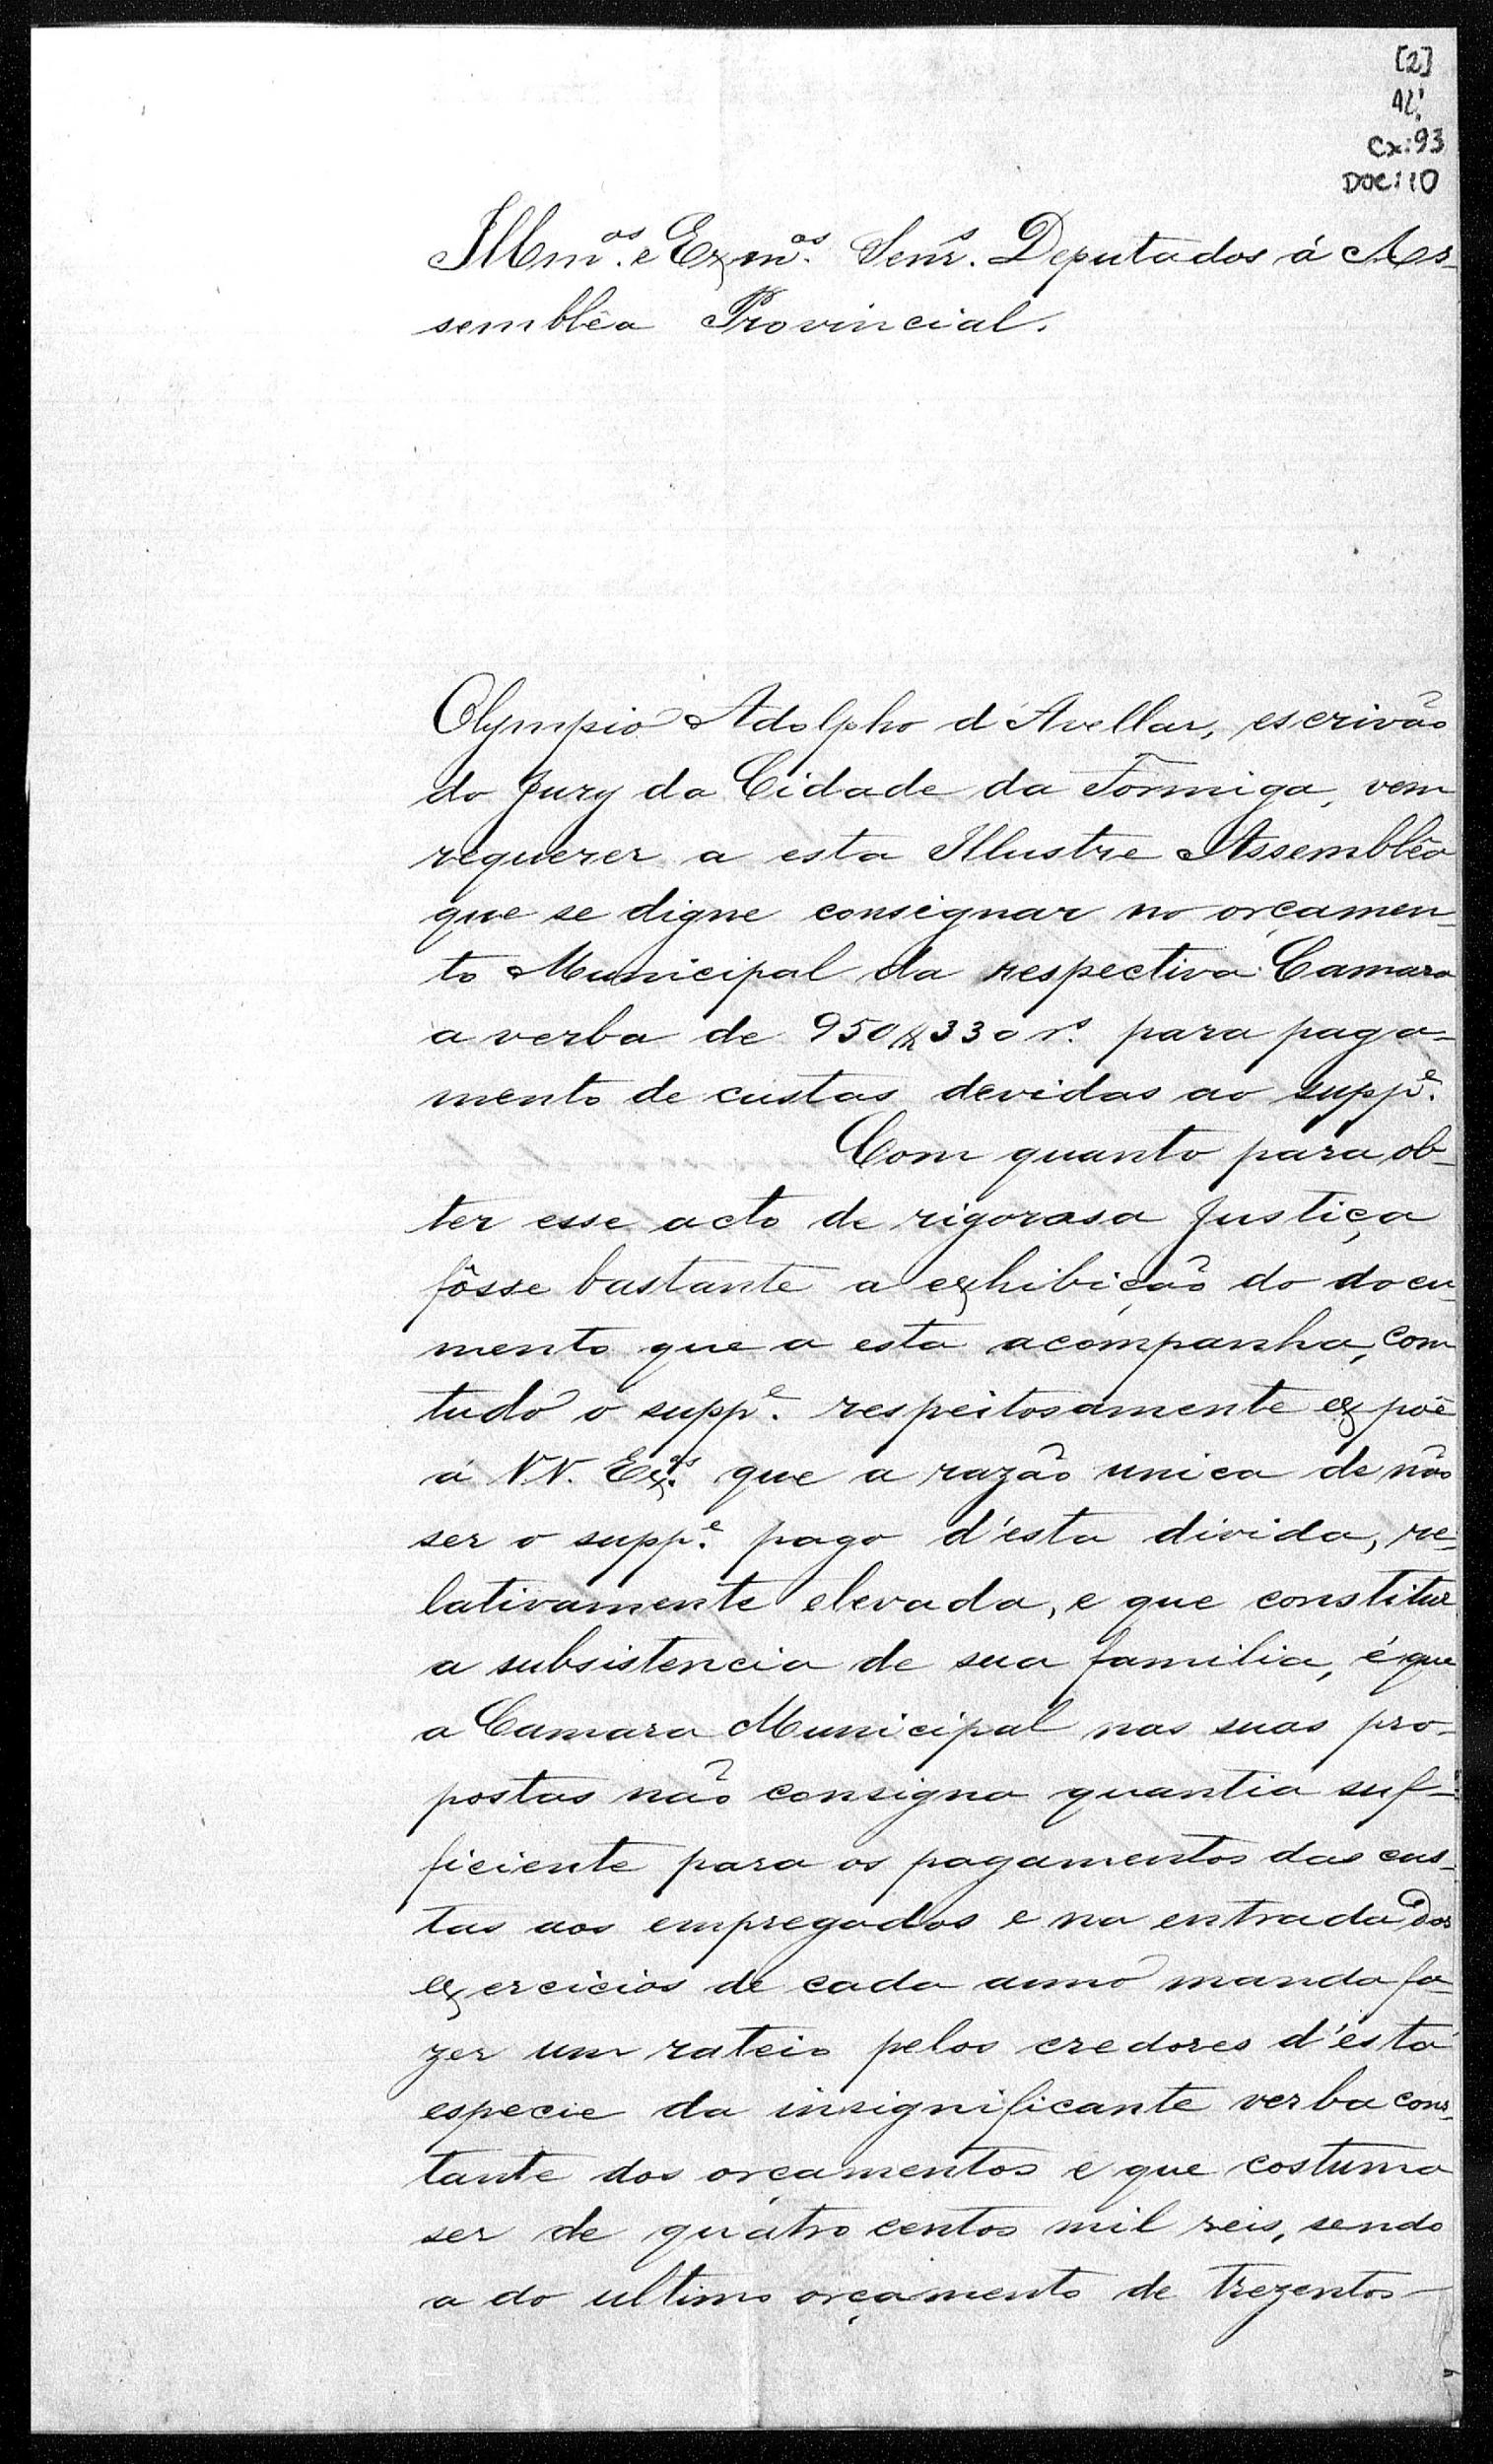 [2]
AL!
Cx: 93
DOC: 10
Illm.os e Exm.os Senr.s Deputados á As-
semblêa Provincial.
Olympio Adolpho d'Avellar, escrivão
do Jury da Cidade da Formiga, vem
requerer a esta Illustre Assemblêa
que se digne consignar no orçamen-
to Municipal da respectiva Camara
a verba de 950$330 r.s para paga-
mento de custas devidas ao supp.e
Com quanto para ob-
ter esse acto de rigorosa Justiça
fôsse bastante a exhibição do docu-
mento que a esta acompanha, com
tudo o supp.e respeitosamente expõe
á VV. Ex.as que a razão unica de não
ser o supp.e pago d'esta divida, re-
lativamente elevada, e que constitue
a subsistencia de sua familia, é que
a Camara Municipal nas suas pro-
postas não consigna quantia suf-
ficiente para os pagamentos das cus-
tas aos empregados e na entrada dos
exercicios de cada anno manda fa-
zer um rateio pelos credores d'esta
especie da insignificante verba cons-
tante dos orçamentos e que costuma
ser de quatro centos mil reis, sendo
a do ultimo orçamento de trezentos